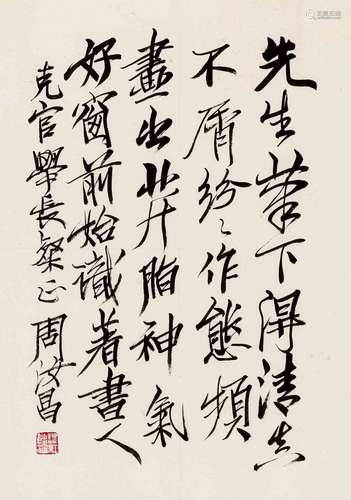 先生筆下得清真
不屑紛〻作態頻
畫出芹脂神氣
好窗前始識著書人
克官學長粲正 周汝昌